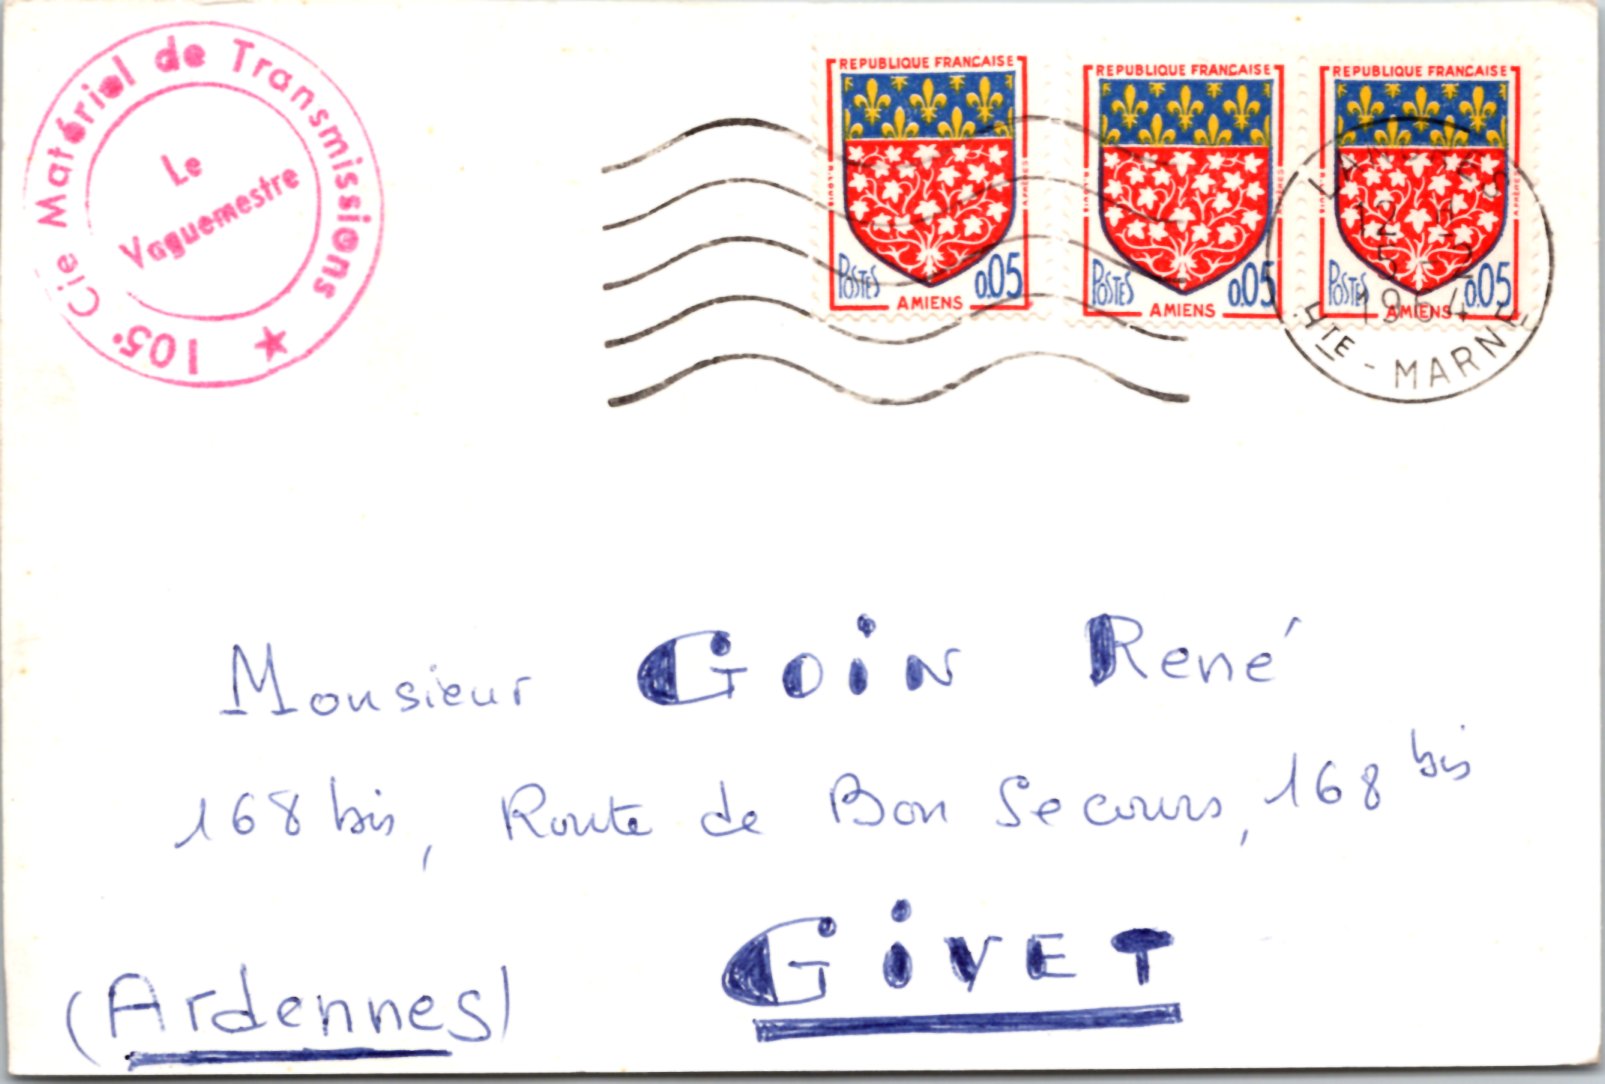 105e Cie Matériel de Transmissions
Le
Vaguemestre
REPUBLIQUE FRANÇAISE
POSTES 0.05
AMIENS
REPUBLIQUE FRANÇAISE
POSTES 0.05
AMIENS
REPUBLIQUE FRANÇAISE
POSTES 0.05
AMIENS
1964
HTE - MARNE
Monsieur GOIN René
168 bis, Route de Bon Secours, 168 bis
GIVET
(Ardennes)